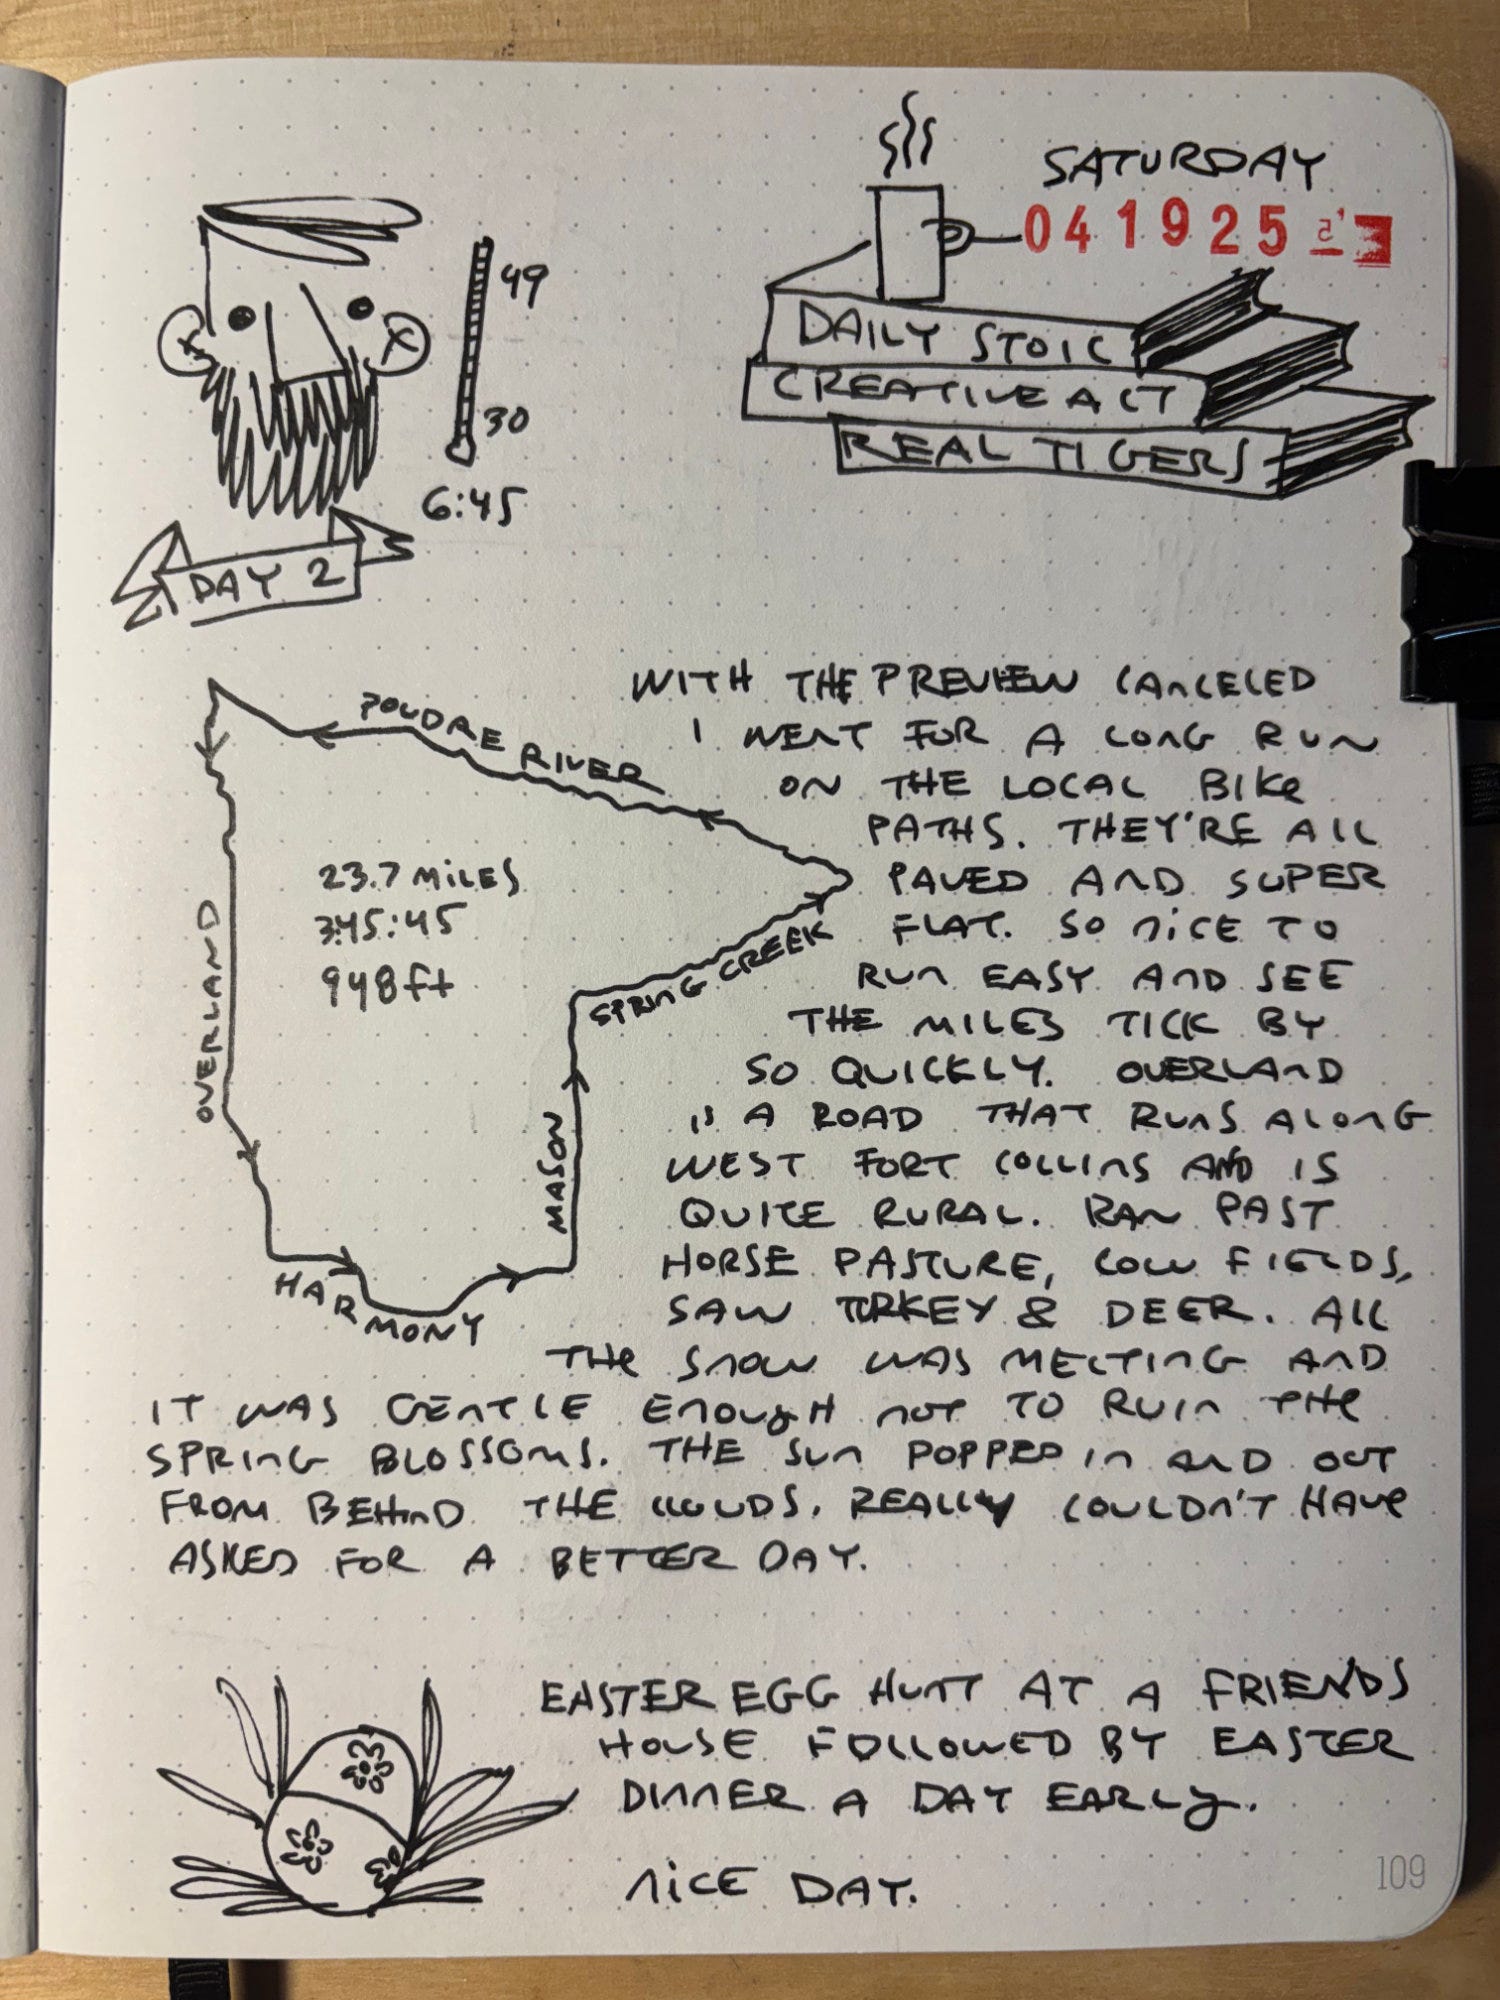 SATURDAY
041925
49
30
6:45
DAY 2
DAILY STOIC
CREATIVE ACT
REAL TIGERS
POUDRE RIVER
OVERLAND
23.7 MILES
3:45:45
948 ft
SPRING CREEK
MASON
HARMONY
WITH THE PREVIEW CANCELED
I WENT FOR A LONG RUN
ON THE LOCAL BIKE
PATHS. THEY'RE ALL
PAVED AND SUPER
FLAT. SO NICE TO
RUN EASY AND SEE
THE MILES TICK BY
SO QUICKLY. OVERLAND
IS A ROAD THAT RUNS ALONG
WEST FORT COLLINS AND IS
QUITE RURAL. RAN PAST
HORSE PASTURE, COW FIELDS,
SAW TURKEY & DEER. ALL
THE SNOW WAS MELTING AND
IT WAS GENTLE ENOUGH NOT TO RUIN THE
SPRING BLOSSOMS. THE SUN POPPED IN AND OUT
FROM BEHIND THE CLOUDS. REALLY COULDN'T HAVE
ASKED FOR A BETTER DAY.
EASTER EGG HUNT AT A FRIENDS
HOUSE FOLLOWED BY EASTER
DINNER A DAY EARLY.
NICE DAY.
109